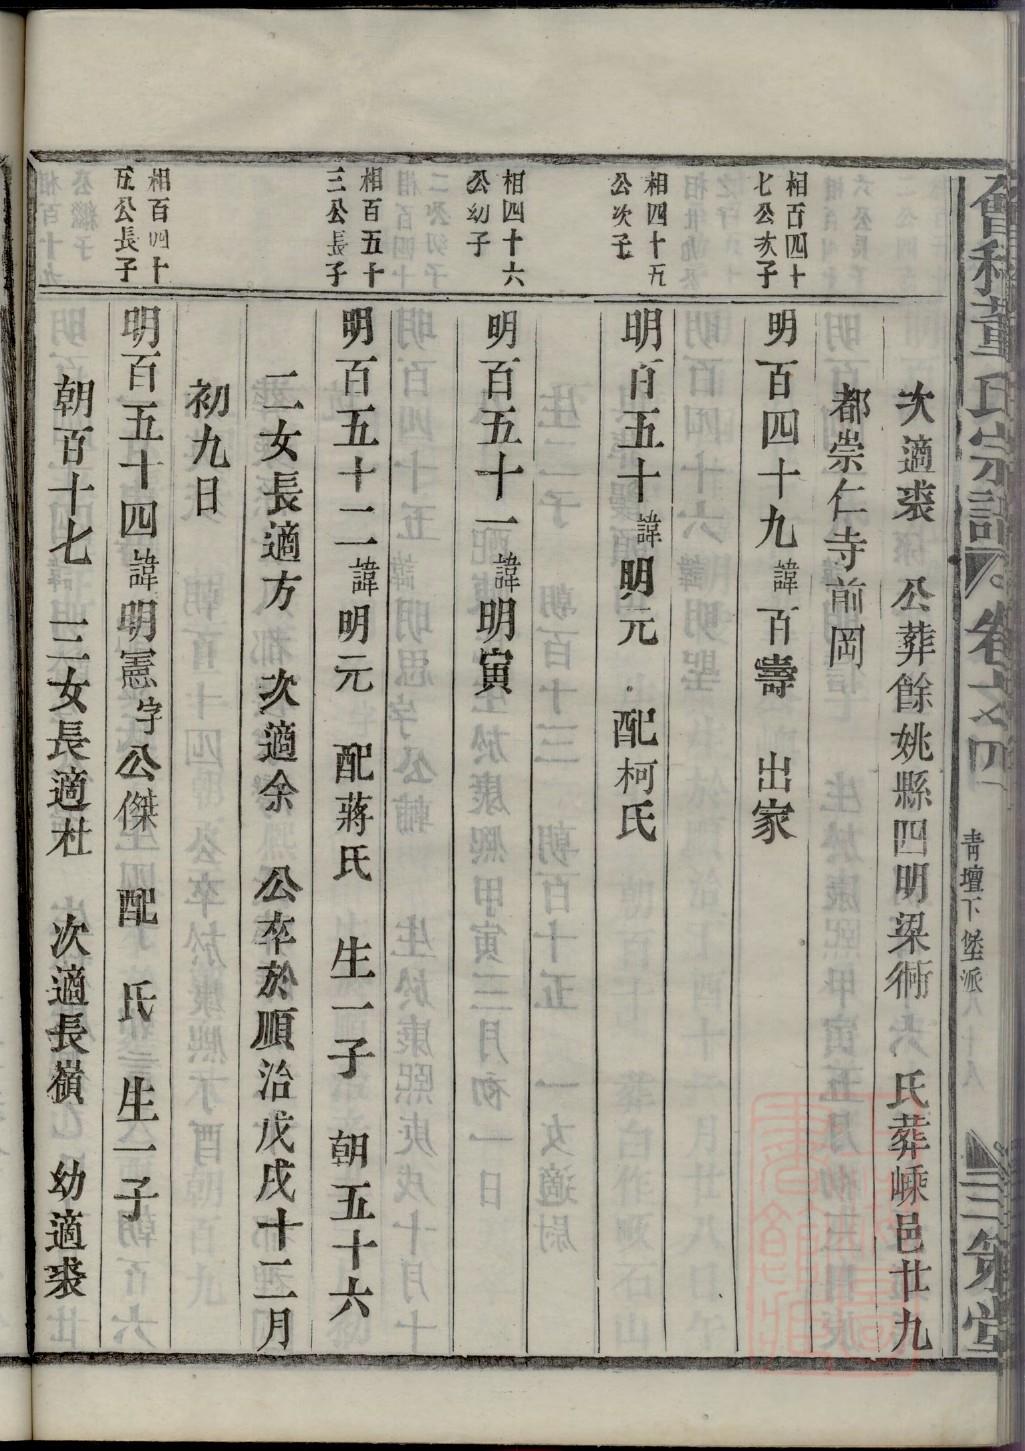 會稽董氏宗譜 卷之四 青壇下堡派 三策堂
次適裘 公葬餘姚縣四明梁衕 氏葬嵊邑廿九
都崇仁寺前岡
相百四十
七公次子
明百四十九諱百壽 出家
相四十五
公次子
明百五十諱明元 配柯氏
相四十六
公幼子
明百五十一諱明寅
相百五十
三公長子
明百五十二諱明元 配蔣氏 生一子 朝五十六
二女長適方 次適余 公卒於順治戊戌十二月
初九日
相百四十
五公長子
明百五十四諱明憲字公傑 配 氏 生一子
朝百十七 三女長適杜 次適長嶺 幼適裘